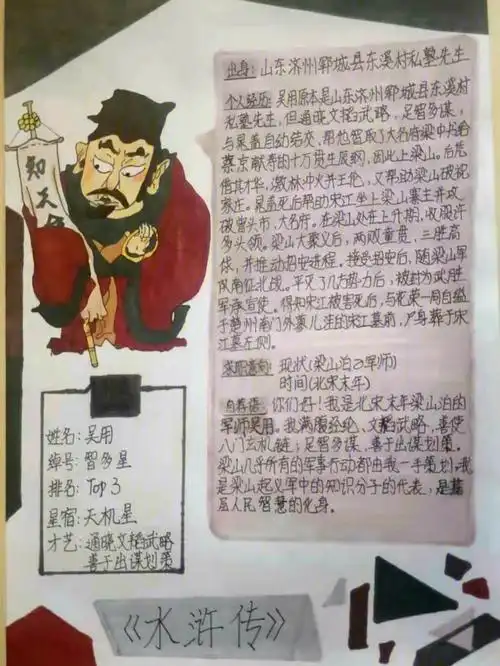 知天
出身: 山东济州郓城县东溪村私塾先生
个人经历: 吴用原本是山东济州郓城县东溪村
私塾先生, 但通晓文韬武略, 足智多谋,
与晁盖自动结交, 帮他智取了大名府梁中书给
蔡京献寿的十万贯生辰纲, 因此上梁山。后凭
借其才华, 激林冲火并王伦, 又帮助梁山破祝
家庄。晁盖死后帮助宋江坐上梁山寨主并攻
破曾头市, 大名府。在梁山处在上升期, 收服许
多头领。梁山大聚义后, 两败童贯, 三胜高
俅, 并推动招安进程。接受招安后, 随梁山军
队南征北战。平灭了几方势力后, 被封为武胜
军承宣使。得知宋江被害死后, 与花荣一同自缢
于楚州南门外蓼儿洼的宋江墓前, 尸身葬于宋
江墓左侧。
求职意向: 现状(梁山泊军师)
时间(北宋末年)
自荐语: 你们好!我是北宋末年梁山泊的
军师吴用。我满腹经纶、文韬武略, 善使
八门玄机链; 足智多谋, 善于出谋划策。
梁山几乎所有的军事行动都由我一手策划, 我
是梁山起义军中的知识分子的代表, 是基
层人民智慧的化身。
姓名: 吴用
绰号: 智多星
排名: Top 3
星宿: 天机星
才艺: 通晓文韬武略
善于出谋划策
《水浒传》